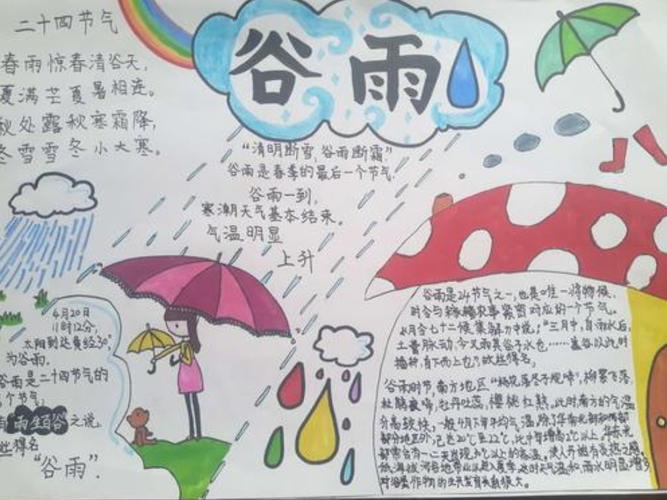 二十四节气
春雨惊春清谷天,
夏满芒夏暑相连。
秋处露秋寒霜降,
冬雪雪冬小大寒。
谷雨
“清明断雪,谷雨断霜”
谷雨是春季的最后一个节气
谷雨一到,
寒潮天气基本结束。
气温明显
上升
4月20日
11时12分,
太阳到达黄经30°
为谷雨。
谷雨是二十四节气的
个节气,
雨生百谷之说
得名
“谷雨”.
谷雨是24节气之一,也是唯一将物候、
时令与农事紧密对应的一个节气。
月令七十二候集解》中说:“三月中,自雨水后,
土膏脉动,今又雨其谷于水也……盖谷以此时
播种,自下而上也”故此得名。
谷雨时节南方地区“杨花落尽子规啼”,柳絮飞落,
杜鹃夜啼,牡丹吐蕊,樱桃红熟。此时南方的气温
升高较快,一般4月下旬平均气温,除了华南北部和西部
部分地区外,已达20℃至22℃,比中旬增高2℃以上。华南东
部常会有一二天出现30℃以上的高温,使人开始有炎热之感。
低海拔河谷地带也以进入夏季。这时天气温和,雨水明显增多
对谷类作物的生长发育关系很大。